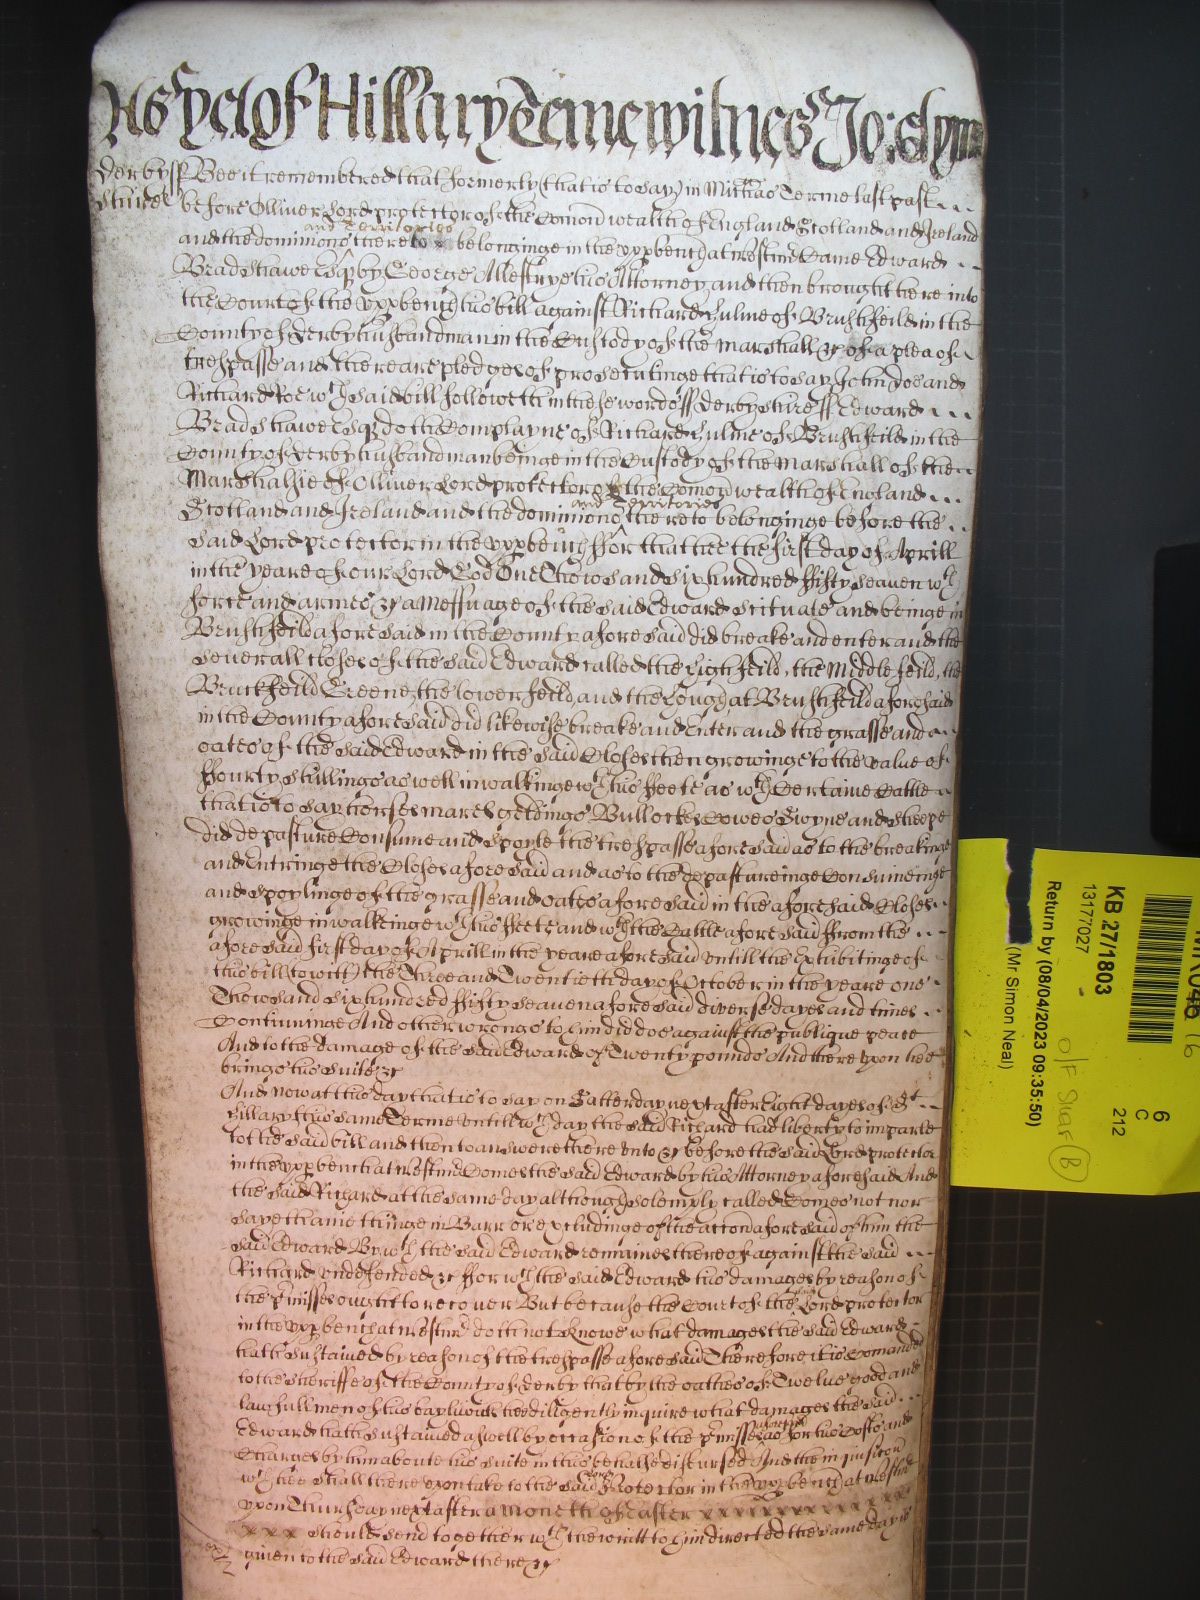 As yet of Hillary Terme witnes Jo: Glynn
Derbysh Bee it remembered that formerly (that is to say) in Micħas Terme last past
shire before Olliver Lord protector of the Comon wealth of England Scotland and Ireland
and Territories
and the dominions thereto belonginge in the upper bench at Westmr Came Edward
Bradshawe Esqr by George Allestrye his Attorney and then brought here into
the Court of the upper bench his bill against Richard Hulme of Brushfeild in the
County of Derby husbandman in the Custody of the Marshall &c of a plea of
trespasse and there are pledges of prosecutinge that is to say John Doe and
Richard Roe wch said bill followeth in these words ss Derbyshire ss Edward
Bradshawe Esqr doth Complayne of Richard Hulme of Brushfeild in the
County of Derby husbandman beinge in the Custody of the Marshall of the
Marshalsie of Olliver Lord protector of the Comon wealth of England
and Territories
Scotland and Ireland and the dominions thereto belonginge before the
said Lord protector in the upper bench ffor that hee the first day of Aprill
in the yeare of our Lord God One Thowsand six hundred ffifty seaven wth
force and armes &c a Messuage of the said Edward scituate and beinge in
Brushfeild aforesaid in the County aforesaid did breake and enter and the
severall closes of the said Edward called the High feild, the Middle feild, the
Bruckfeild Greene, the lower feild, and the Lough at Brushfeild aforesaid
in the County aforesaid did likewise breake and Enter and the grasse and
oates of the said Edward in the said Closes then growinge to the value of
ffourty shillings as well in walkinge wth his ffeete as wth Certaine Cattle
that is to say horses mares geldings Bullockes Cowes Swyne and sheepe
did depasture Consume and spoyle the trespasse aforesaid as to the breakinge
and Entringe the Closes aforesaid and as to the depastureinge Consumeinge
and spoylinge of the grasse and oates aforesaid in the aforesaid Closes
growinge in walkinge wth his ffeete and wth the Cattle aforesaid ffrom the
aforesaid first day of Aprill in the yeare aforesaid untill the Exhibitinge of
this bill (to witt) the Three and Twentieth day of October in the yeare one
Thowsand six hundred ffifty seaven aforesaid diverse dayes and times
Continuinge And other wrongs to him did doe against the publique peace
And to the damage of the said Edward of Twenty pounds And thereupon hee
brings his suite &c
And now at this day that is to say on Satterday next after Eight dayes of St
Hillary this same Terme untill wch day the said Richard had liberty to imparle
to the said bill and then to answere there unto &c before the said Lord protector
in the upper bench at Westmr Comes the said Edward by his Attorney aforesaid And
the said Richard at the same day although solemply called Comes not nor
sayeth anie thinge in Barr or excludinge of the accon aforesaid of him the
said Edward By wch the said Edward remaines thereof against the said
Richard undefended &c ffor wch the said Edward his damages by reason of
the pmisses ought to recover But because the Court of the said Lord protector
in the upper bench at Westmr doth not knowe what damages the said Edward
hath sustained by reason of the trespasse aforesaid Therefore it is Comanded
to the Sheriffe of the County of Derby that by the oathes of Twelve good and
lawfull men of his bayliwick hee diligently inquire what damages the said
Edward hath sustained aswell by occasion of the pmisses aforesaid as for his Costs and
Charges by him aboute his suite in this behalfe disbursed And the inquisicon
wch hee shall thereupon take to the said Lord Protector in the upper bench at Westmr
upon Thursday next after a Moneth of Easter x x x x x x x x x x
x x x should send together wth the writt to him directed the same day is
given to the said Edward there &c
KB 27/1803
13177027
Return by (08/04/2023 09:35:50)
(Mr Simon Neal)
6
C
212